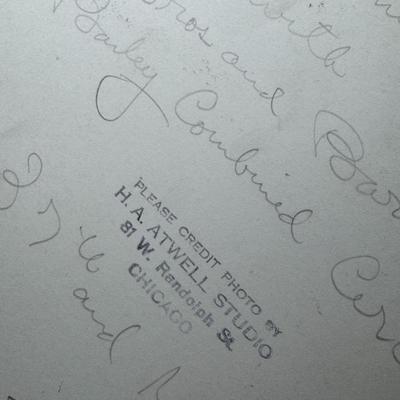 with
Bros and Bar
Bailey Combined Circ
PLEASE CREDIT PHOTO BY
H. A. ATWELL STUDIO
81 W. Randolph St.
CHICAGO
and